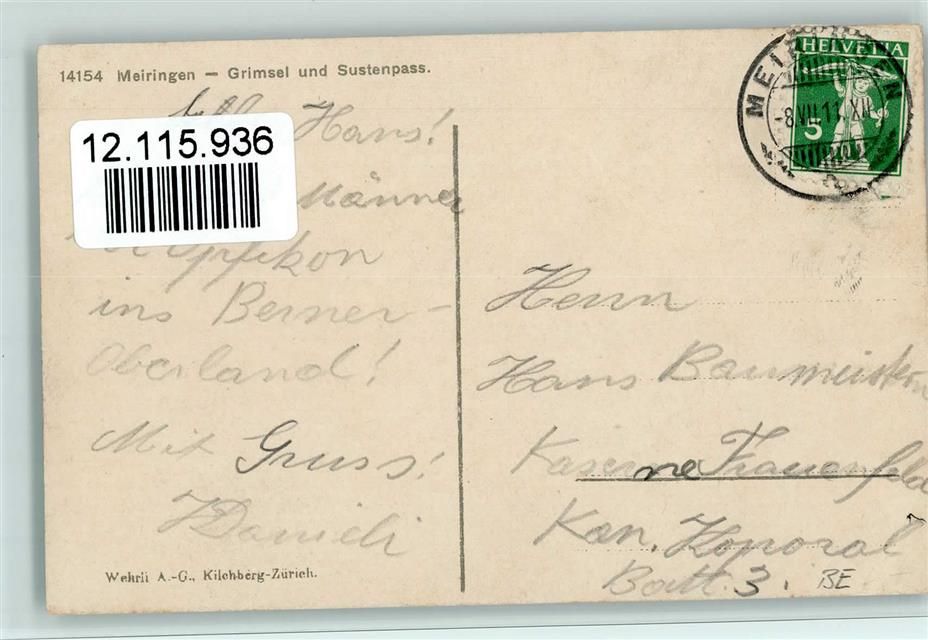 14154 Meiringen — Grimsel und Sustenpass.
Hans!
12.115.936
Männer
Opfikon
ins Berner-
Oberland!
Mit Gruss!
Wehrli A.-G., Kilchberg-Zürich.
HELVETIA
MEIRINGEN
-8.VII.11.XII
5
Herrn
Hans Baumeister
Kaserne Frauenfeld
Kan. Koporal
Batt. 3.
BE